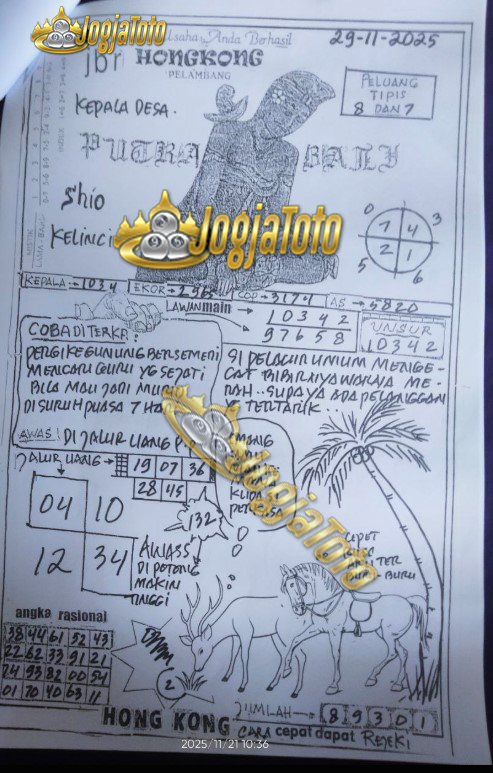 JogjaToto
Usaha Anda Berhasil
29-11-2025
jbr
HONGKONG
PELAMBANG
PELUANG
TIPIS
8 DAN 7
KEPALA DESA.
PUTRA BALI
Shio
Kelinci
JogjaToto
0 3
7 4
2 1
5 6
KEPALA → 1034
EKOR → 2965
COP → 3174
AS → 5820
LAWAN main →
10342
97658
UNSUR
10342
COBA DITERKA:
PERGI KEGUNUNG BERSEMEDI
MENCARI GURU YG SEJATI
BILA MAU JADI MURID
DISURUH PUASA 7 HA
SI PELACUR UMUM MENGE-
CAT BIBIRNYA WARNA ME-
RAH.. SUPAYA ADA PELANGGAN
YG TERTARIK...
AWAS! DI JALUR UANG
JALUR UANG →
19 07 36
28 45
132
04 10
12 34
AWASS
DI POTONG
MAKIN
TINGGI
KUDA
JogjaToto
angka rasional
38 44 61 52 43
22 62 33 91 21
74 93 82 00 54
01 70 40 63 11
2
JUMLAH → 8 9 3 0 1
HONG KONG
CARA cepat dapat REJEKI
2025/11/21 10:36